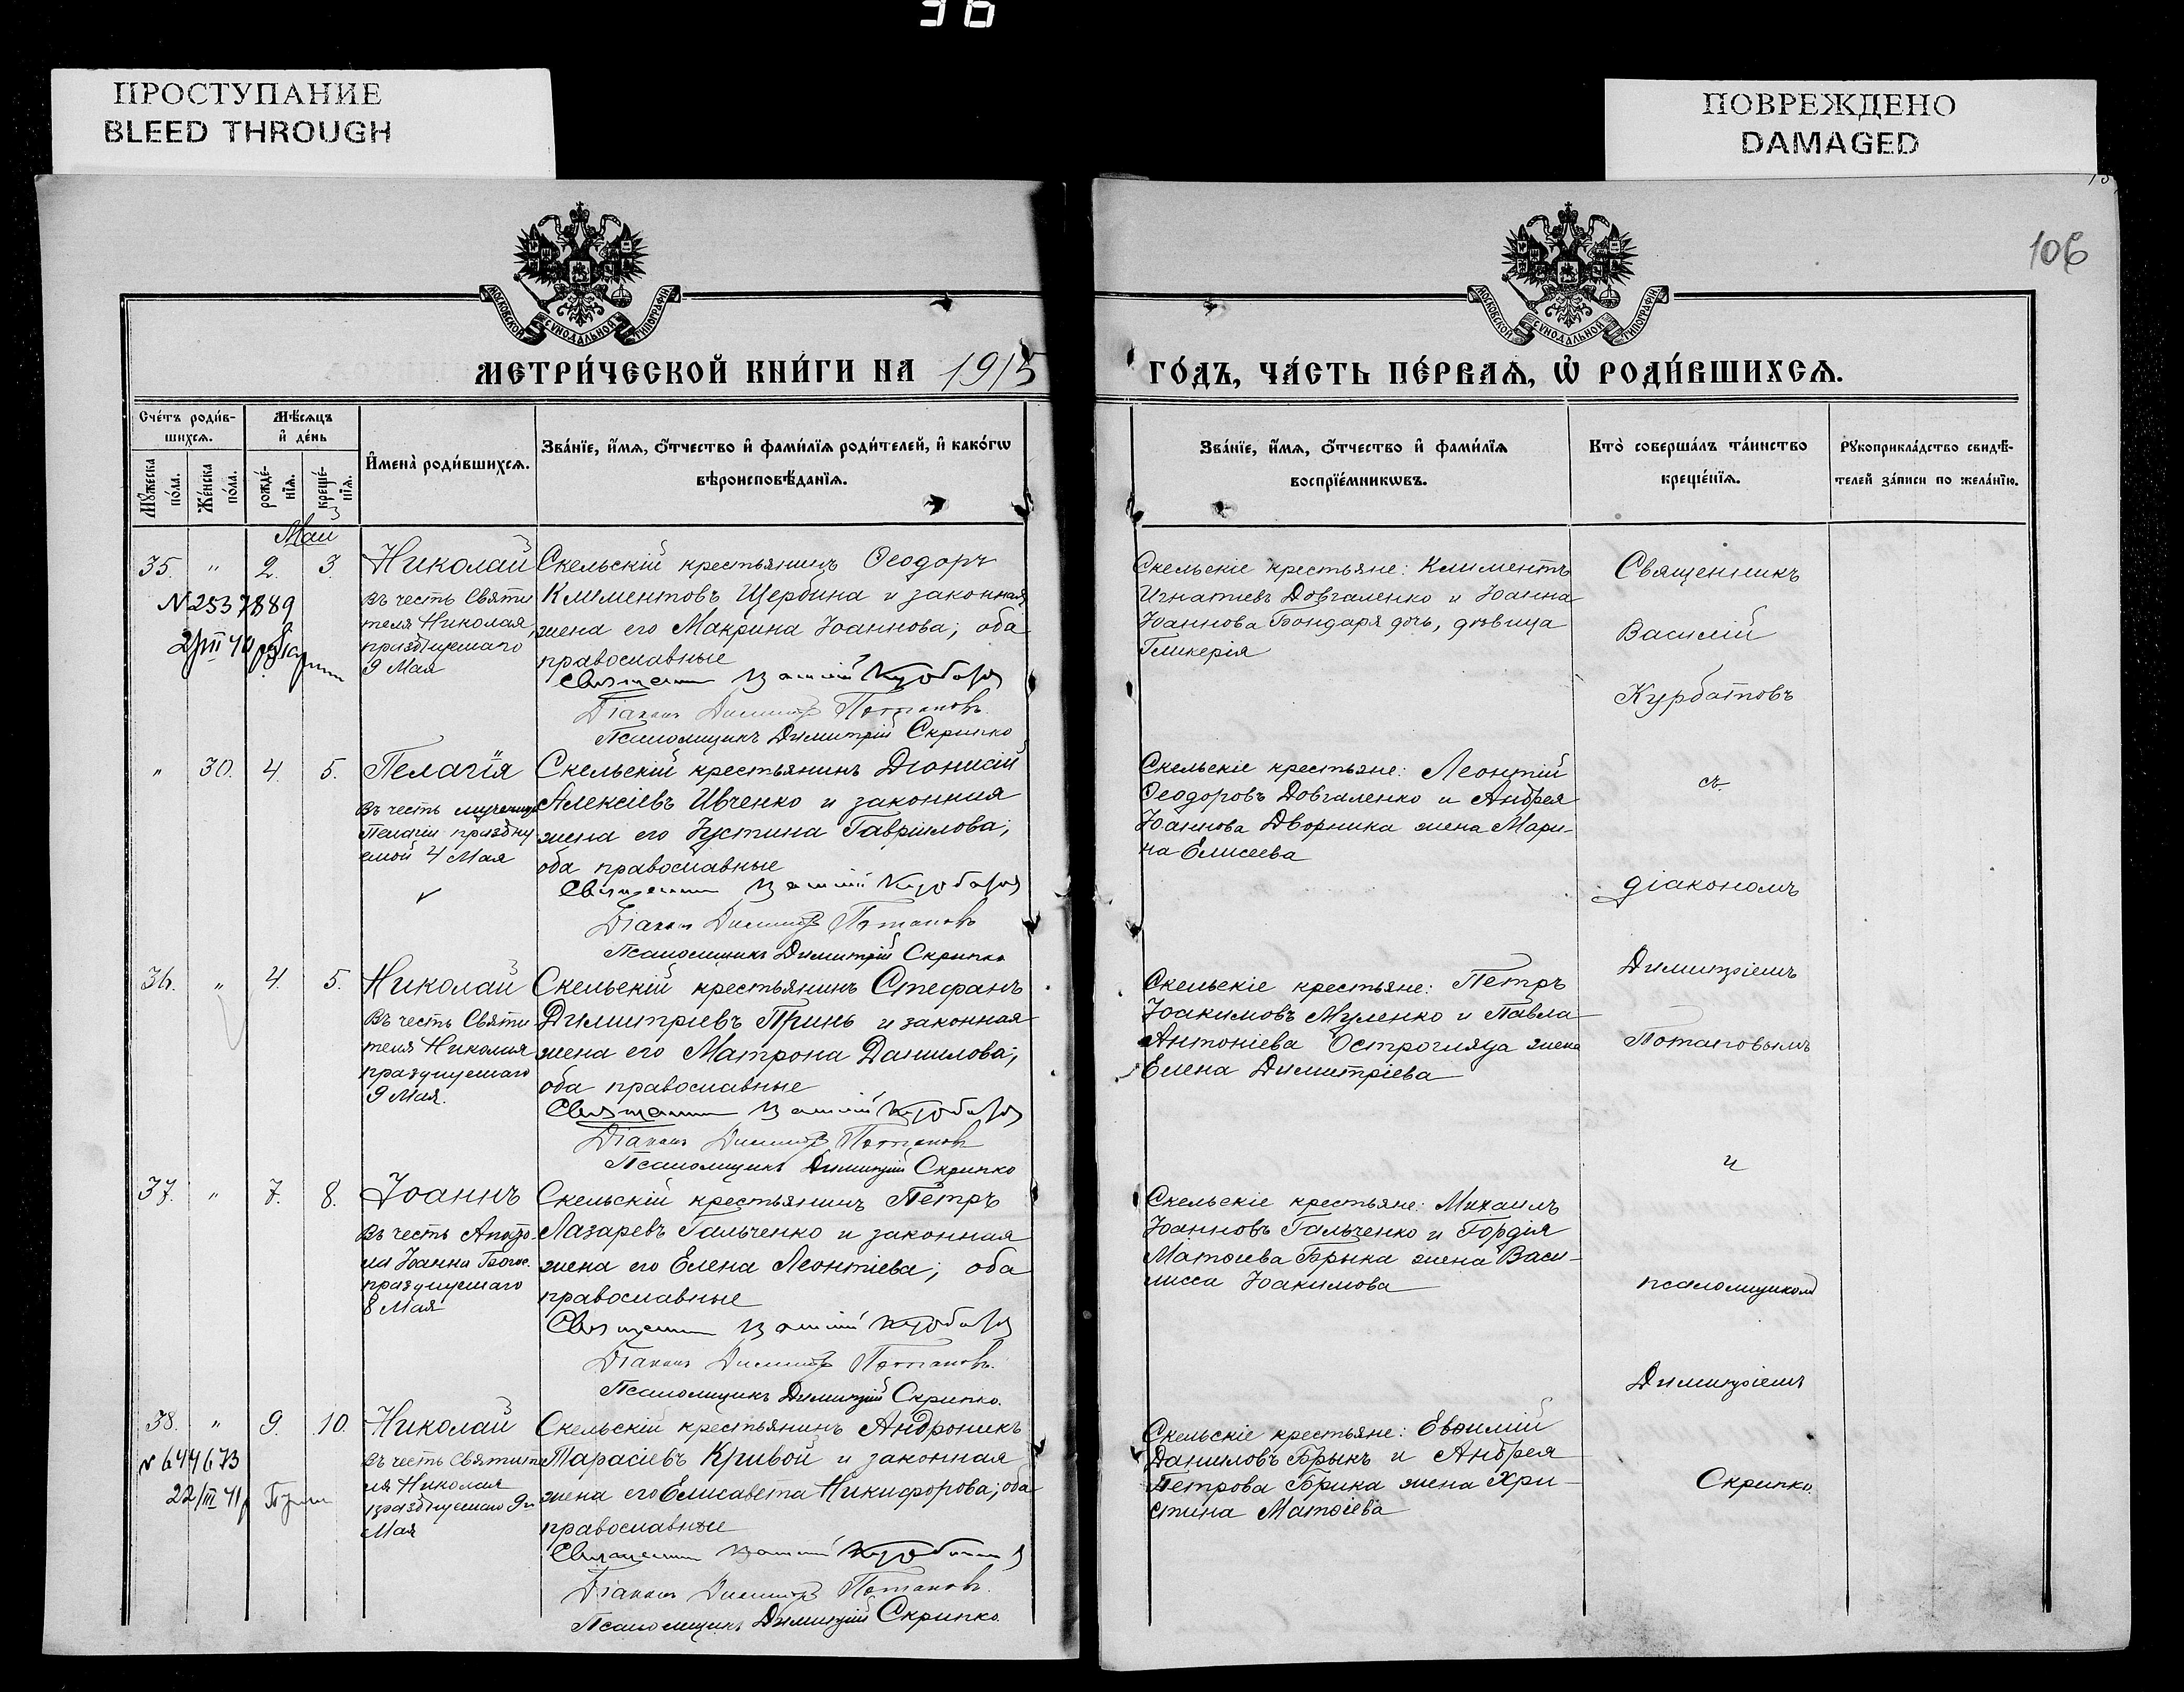 36
ПРОСТУПАНИЕ
BLEED THROUGH
ПОВРЕЖДЕНО
DAMAGED
106
МОСКОВСКОЙ СѴНОДАЛЬНОЙ ТИПОГРАФІИ
МОСКОВСКОЙ СѴНОДАЛЬНОЙ ТИПОГРАФІИ
МЕТРИ́ЧЕСКОЙ КНИ́ГИ НА 1915
ГО́ДЪ, ЧА́СТЬ ПЕ́РВАѦ, Ѡ҆ РОДИ́ВШИХСѦ.
Сче́тъ роди́в-
шихсѧ.
Мꙋ́жеска
по́ла.
Же́нска
по́ла.
Мѣ́сѧцъ
и҆ де́нь
рожде́-
нїѧ.
креще́-
нїѧ.
И҆мена̀ роди́вшихсѧ.
Зва́нїе, и҆́мѧ, ѻ҆́тчество и҆ фами́лїѧ роди́телей, и҆ како́гѡ
вѣроисповѣ́данїѧ.
Зва́нїе, и҆́мѧ, ѻ҆́тчество и҆ фами́лїѧ
воспрїе́мникѡвъ.
Кто̀ соверша́лъ та́инство
креще́нїѧ.
Рꙋкоприкла́дство свидѣ́-
телей за́писи по жела́нїю.
Май
35. " 2. 3.
№ 2537889
2/III 40
Николай
Въ честь Святи
теля Николая,
празднуемаго
9 Мая
Скельскій крестьянинъ Ѳеодоръ
Климентовъ Щербина и законная
жена его Макрина Іоаннова; оба
православные
Священникъ Василій Курбатовъ
Діаконъ Димитрій Потаповъ
Псаломщикъ Димитрій Скрипко
Скельскіе крестьяне: Климентъ
Игнатіевъ Довгаленко и Іоанна
Іоаннова Бондаря дочь, дѣвица
Гликерія
" 30. 4. 5.
Пелагія
Въ честь мученицы
Пелагіи праздну
емой 4 Мая
Скельскій крестьянинъ Діонисій
Алексіевъ Ивченко и законная
жена его Іустина Гавріилова;
оба православные
Священникъ Василій Курбатовъ
Діаконъ Димитрій Потаповъ
Псаломщикъ Димитрій Скрипко
Скельскіе крестьяне: Леонтій
Ѳеодоровъ Довгаленко и Андрея
Іоаннова Дворника жена Мари-
на Елисеева
36. " 4. 5.
Николай
Въ честь Святи
теля Николая
празднуемаго
9 Мая.
Скельскій крестьянинъ Стефанъ
Димитріевъ Принь и законная
жена его Матрона Даніилова;
оба православные
Священникъ Василій Курбатовъ
Діаконъ Димитрій Потаповъ
Псаломщикъ Димитрій Скрипко
Скельскіе крестьяне: Петръ
Іоакимовъ Муленко и Павла
Антоніева Острогляда жена
Елена Димитріева
37. " 7. 8.
Іоаннъ
Въ честь Апосто
ла Іоанна Богос.
празднуемаго
8 Мая
Скельскій крестьянинъ Петръ
Лазаревъ Гальченко и законная
жена его Елена Леонтіева; оба
православные
Священникъ Василій Курбатовъ
Діаконъ Димитрій Потаповъ.
Псаломщикъ Димитрій Скрипко.
Скельскіе крестьяне: Михаилъ
Іоанновъ Гальченко и Гордія
Матѳіева Брыка жена Васи-
лисса Іоакимова
38. " 9. 10.
№ 644673
22/III 41
Николай
Въ честь Святите
ля Николая
празднуемаго 9го
Мая
Скельскій крестьянинъ Андроникъ
Тарасіевъ Кривой и законная
жена его Елисавета Никифорова; оба
православные
Священникъ Василій Курбатовъ
Діаконъ Димитрій Потаповъ.
Псаломщикъ Димитрій Скрипко.
Скельскіе крестьяне: Евѳимій
Даниловъ Брыкъ и Андрея
Петрова Брика жена Хри-
стина Матѳіева
Священникъ
Василій
Курбатовъ
съ
діакономъ
Димитріемъ
Потаповымъ
и
псаломщикомъ
Димитріемъ
Скрипко.